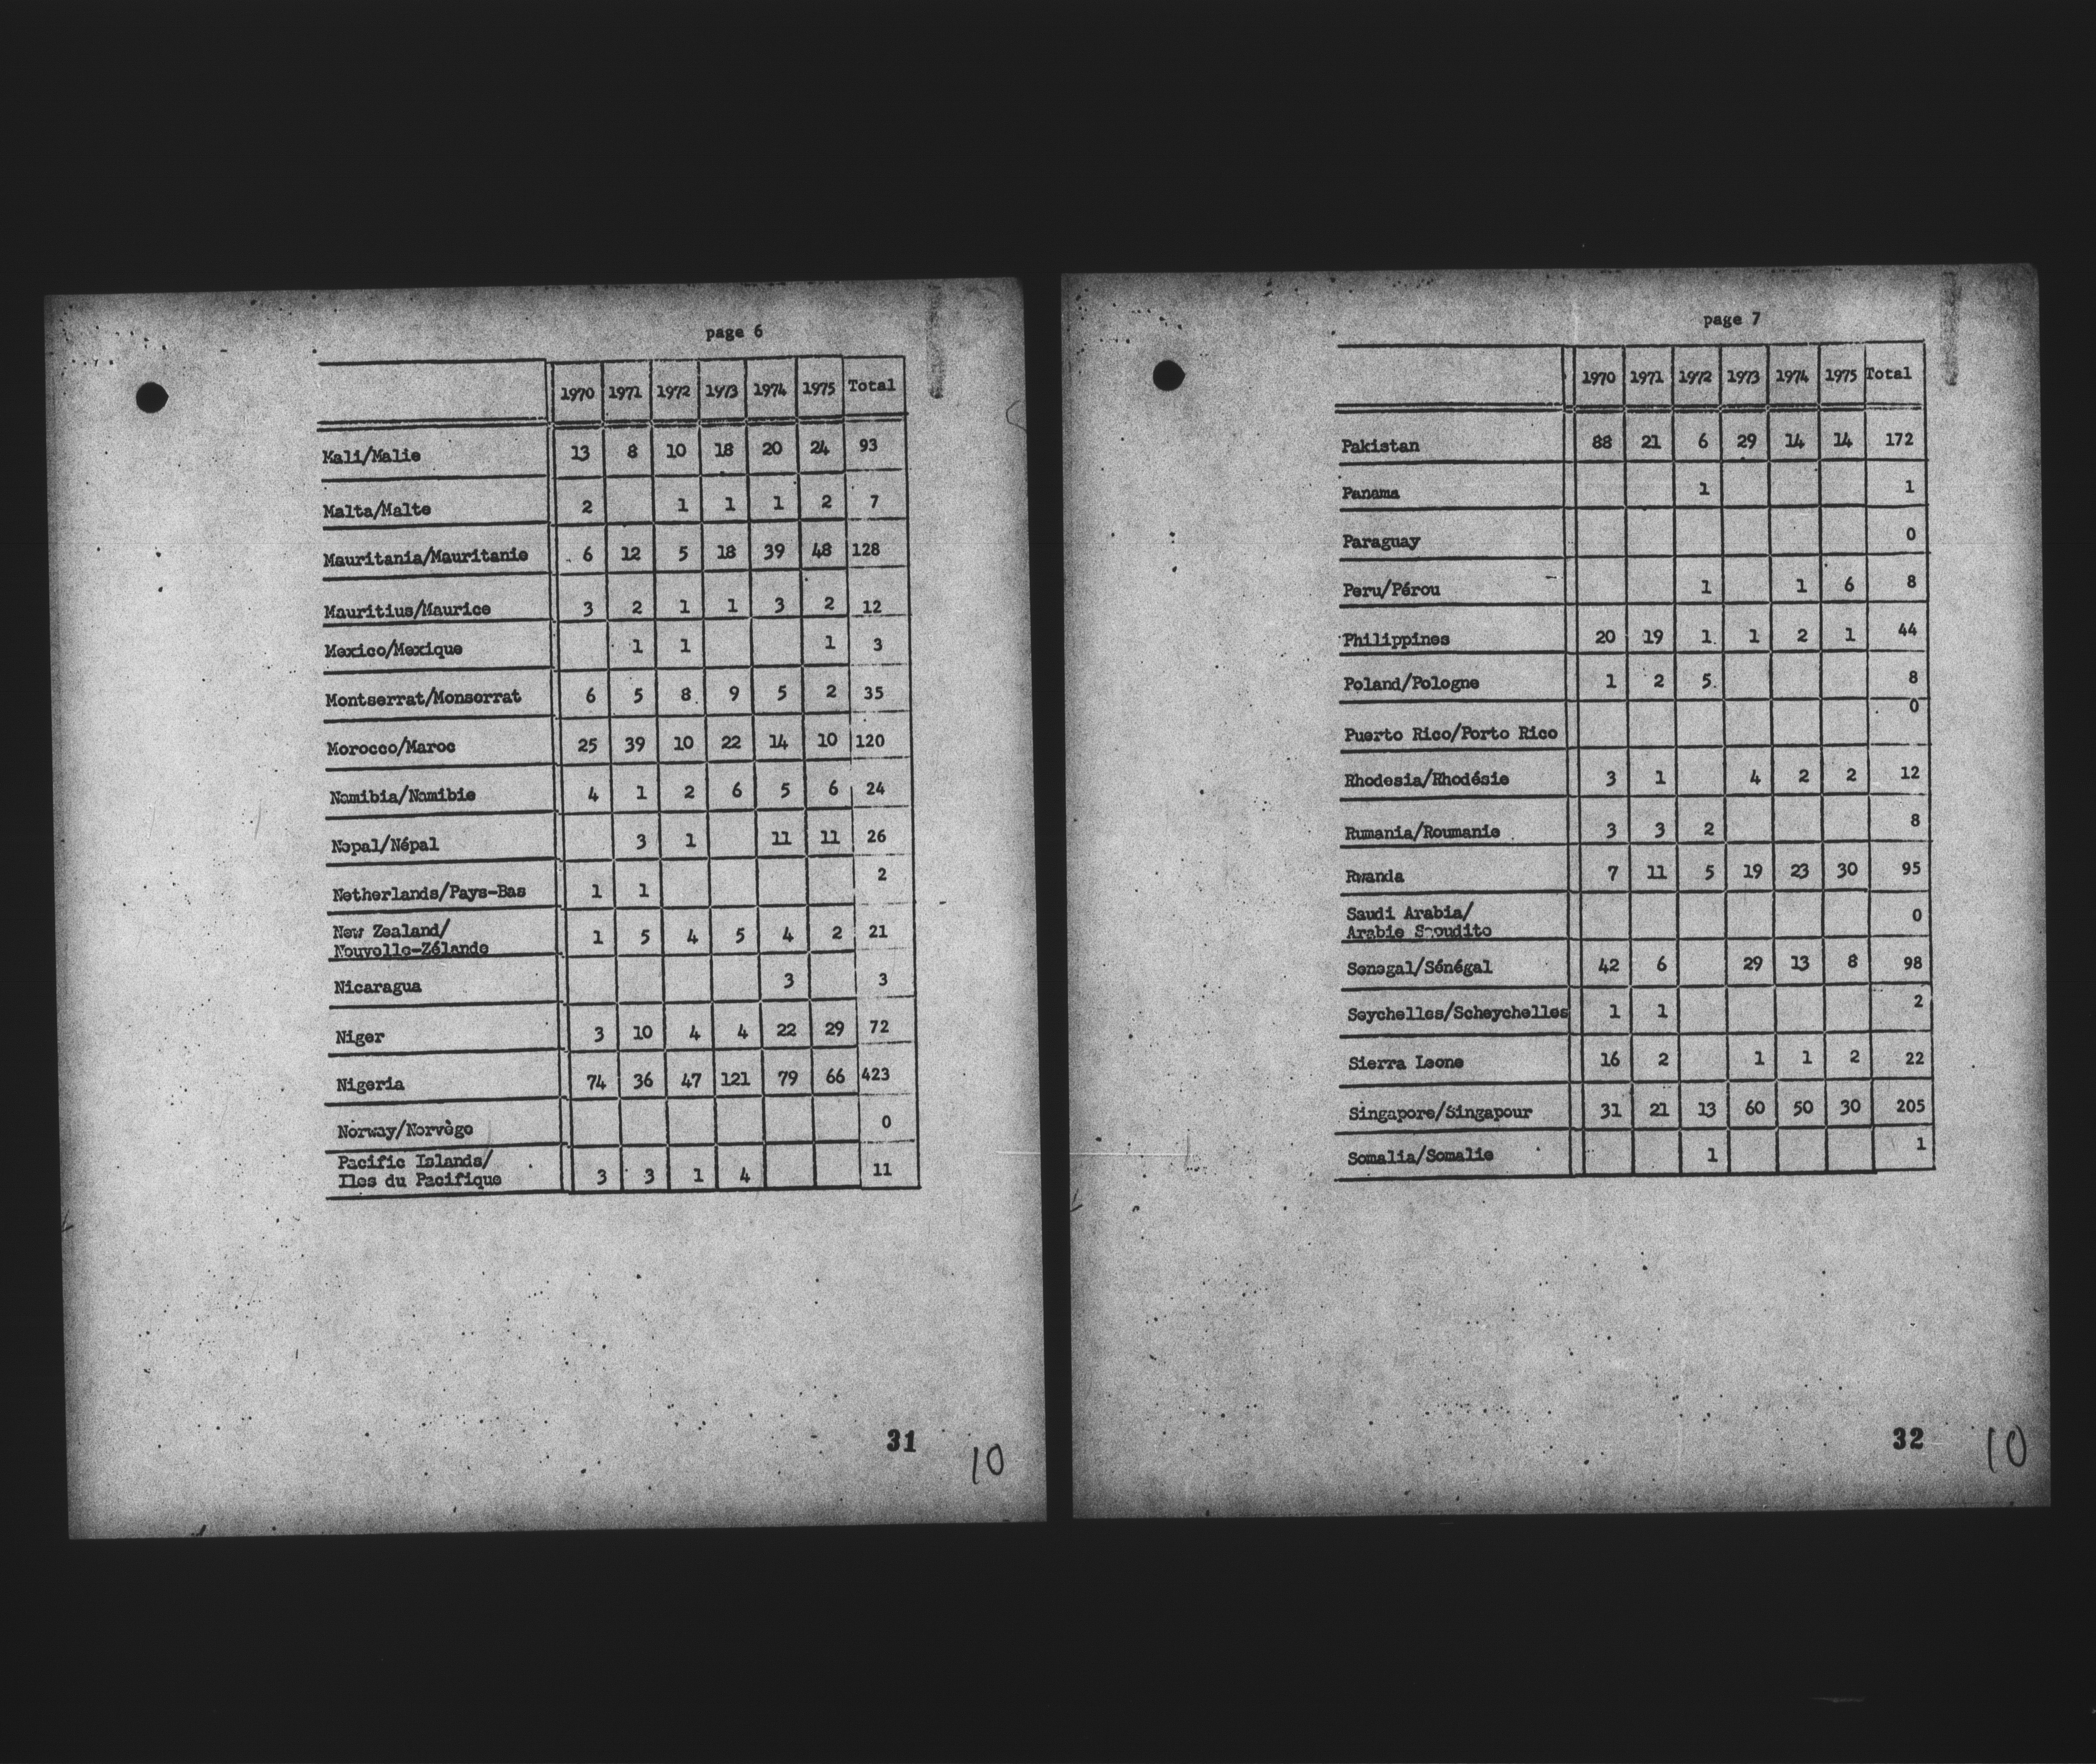 page 6
1970 1971 1972 1973 1974 1975 Total
Mali/Malie 13 8 10 18 20 24 93
Malta/Malte 2 1 1 1 2 7
Mauritania/Mauritanie 6 12 5 18 39 48 128
Mauritius/Maurice 3 2 1 1 3 2 12
Mexico/Mexique 1 1 1 3
Montserrat/Monserrat 6 5 8 9 5 2 35
Morocco/Maroc 25 39 10 22 14 10 120
Namibia/Namibie 4 1 2 6 5 6 24
Nepal/Népal 3 1 11 11 26
Netherlands/Pays-Bas 1 1 2
New Zealand/
Nouvelle-Zélande 1 5 4 5 4 2 21
Nicaragua 3 3
Niger 3 10 4 4 22 29 72
Nigeria 74 36 47 121 79 66 423
Norway/Norvège 0
Pacific Islands/
Iles du Pacifique 3 3 1 4 11
31
10
page 7
1970 1971 1972 1973 1974 1975 Total
Pakistan 88 21 6 29 14 14 172
Panama 1 1
Paraguay 0
Peru/Pérou 1 1 6 8
Philippines 20 19 1 1 2 1 44
Poland/Pologne 1 2 5 8
Puerto Rico/Porto Rico 0
Rhodesia/Rhodésie 3 1 4 2 2 12
Rumania/Roumanie 3 3 2 8
Rwanda 7 11 5 19 23 30 95
Saudi Arabia/ 0
Arabie Saoudite
Senegal/Sénégal 42 6 29 13 8 98
Seychelles/Scheychelles 1 1 2
Sierra Leone 16 2 1 1 2 22
Singapore/Singapour 31 21 13 60 50 30 205
Somalia/Somalie 1 1
32
10